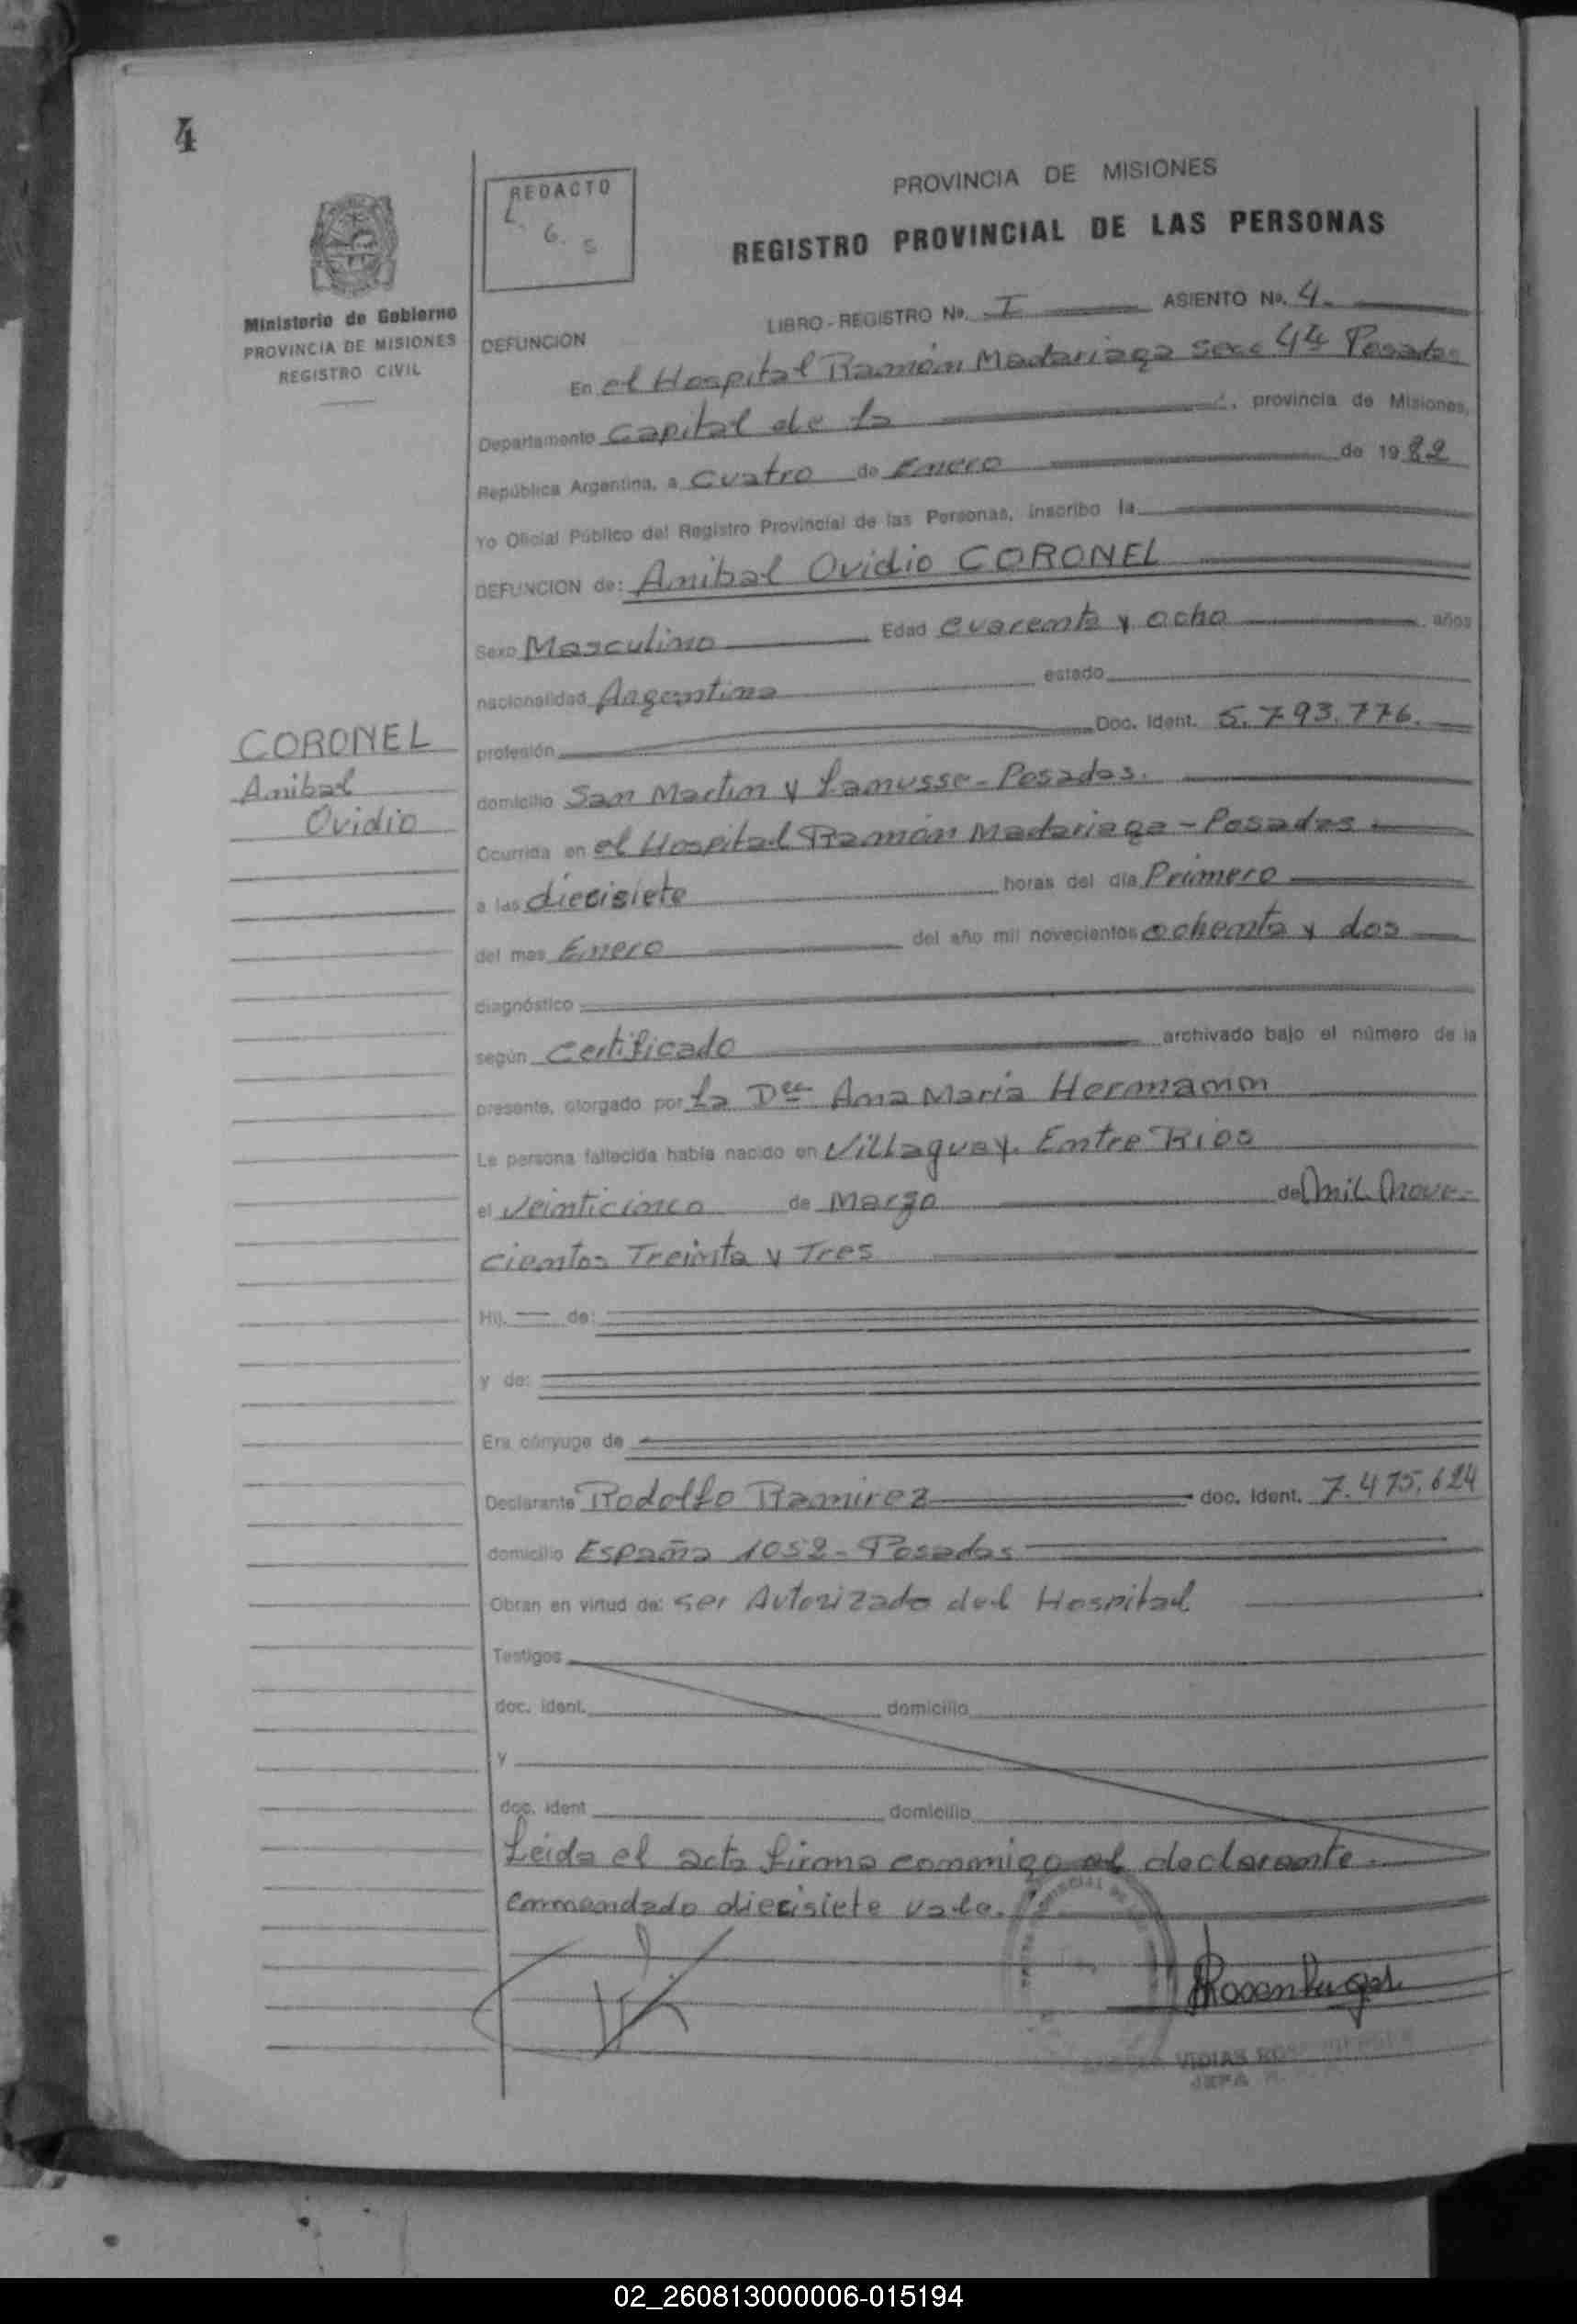 4
REDACTO
L. G. S
PROVINCIA DE MISIONES
REGISTRO PROVINCIAL DE LAS PERSONAS
Ministerio de Gobierno
PROVINCIA DE MISIONES
REGISTRO CIVIL
LIBRO - REGISTRO No. I ASIENTO No. 4.
DEFUNCION
En el Hospital Ramón Madariaga Secc 4ta Posadas
Departamento Capital de la , provincia de Misiones,
República Argentina, a Cuatro de Enero de 1982
Yo Oficial Público del Registro Provincial de las Personas, inscribo la
DEFUNCION de: Anibal Ovidio CORONEL
Sexo Masculino Edad cuarenta y ocho años
nacionalidad Argentina estado
CORONEL
Anibal
Ovidio
profesión Doc. Ident. 5.793.776.
domicilio San Martin y Lanusse - Posadas.
Ocurrida en el Hospital Ramón Madariaga - Posadas
a las diecisiete horas del día Primero
del mes Enero del año mil novecientos ochenta y dos
diagnóstico
según Certificado archivado bajo el número de la
presente, otorgado por La Dra Ana Maria Hermann
La persona fallecida había nacido en Villaguay. Entre Rios
el Veinticinco de Marzo de mil nove-
cientos Treinta y Tres
Hij. de:
y de:
Era cónyuge de
Declarante Rodolfo Ramirez doc. Ident. 7.475.624
domicilio España 1052 - Posadas
Obran en virtud de: ser Autorizado del Hospital
Testigos
doc. ident. domicilio
y
doc. ident domicilio
Leida el acta firma conmigo el declarante.
enmendado diecisiete vale.
VIDIAS
JEFA
02_260813000006-015194